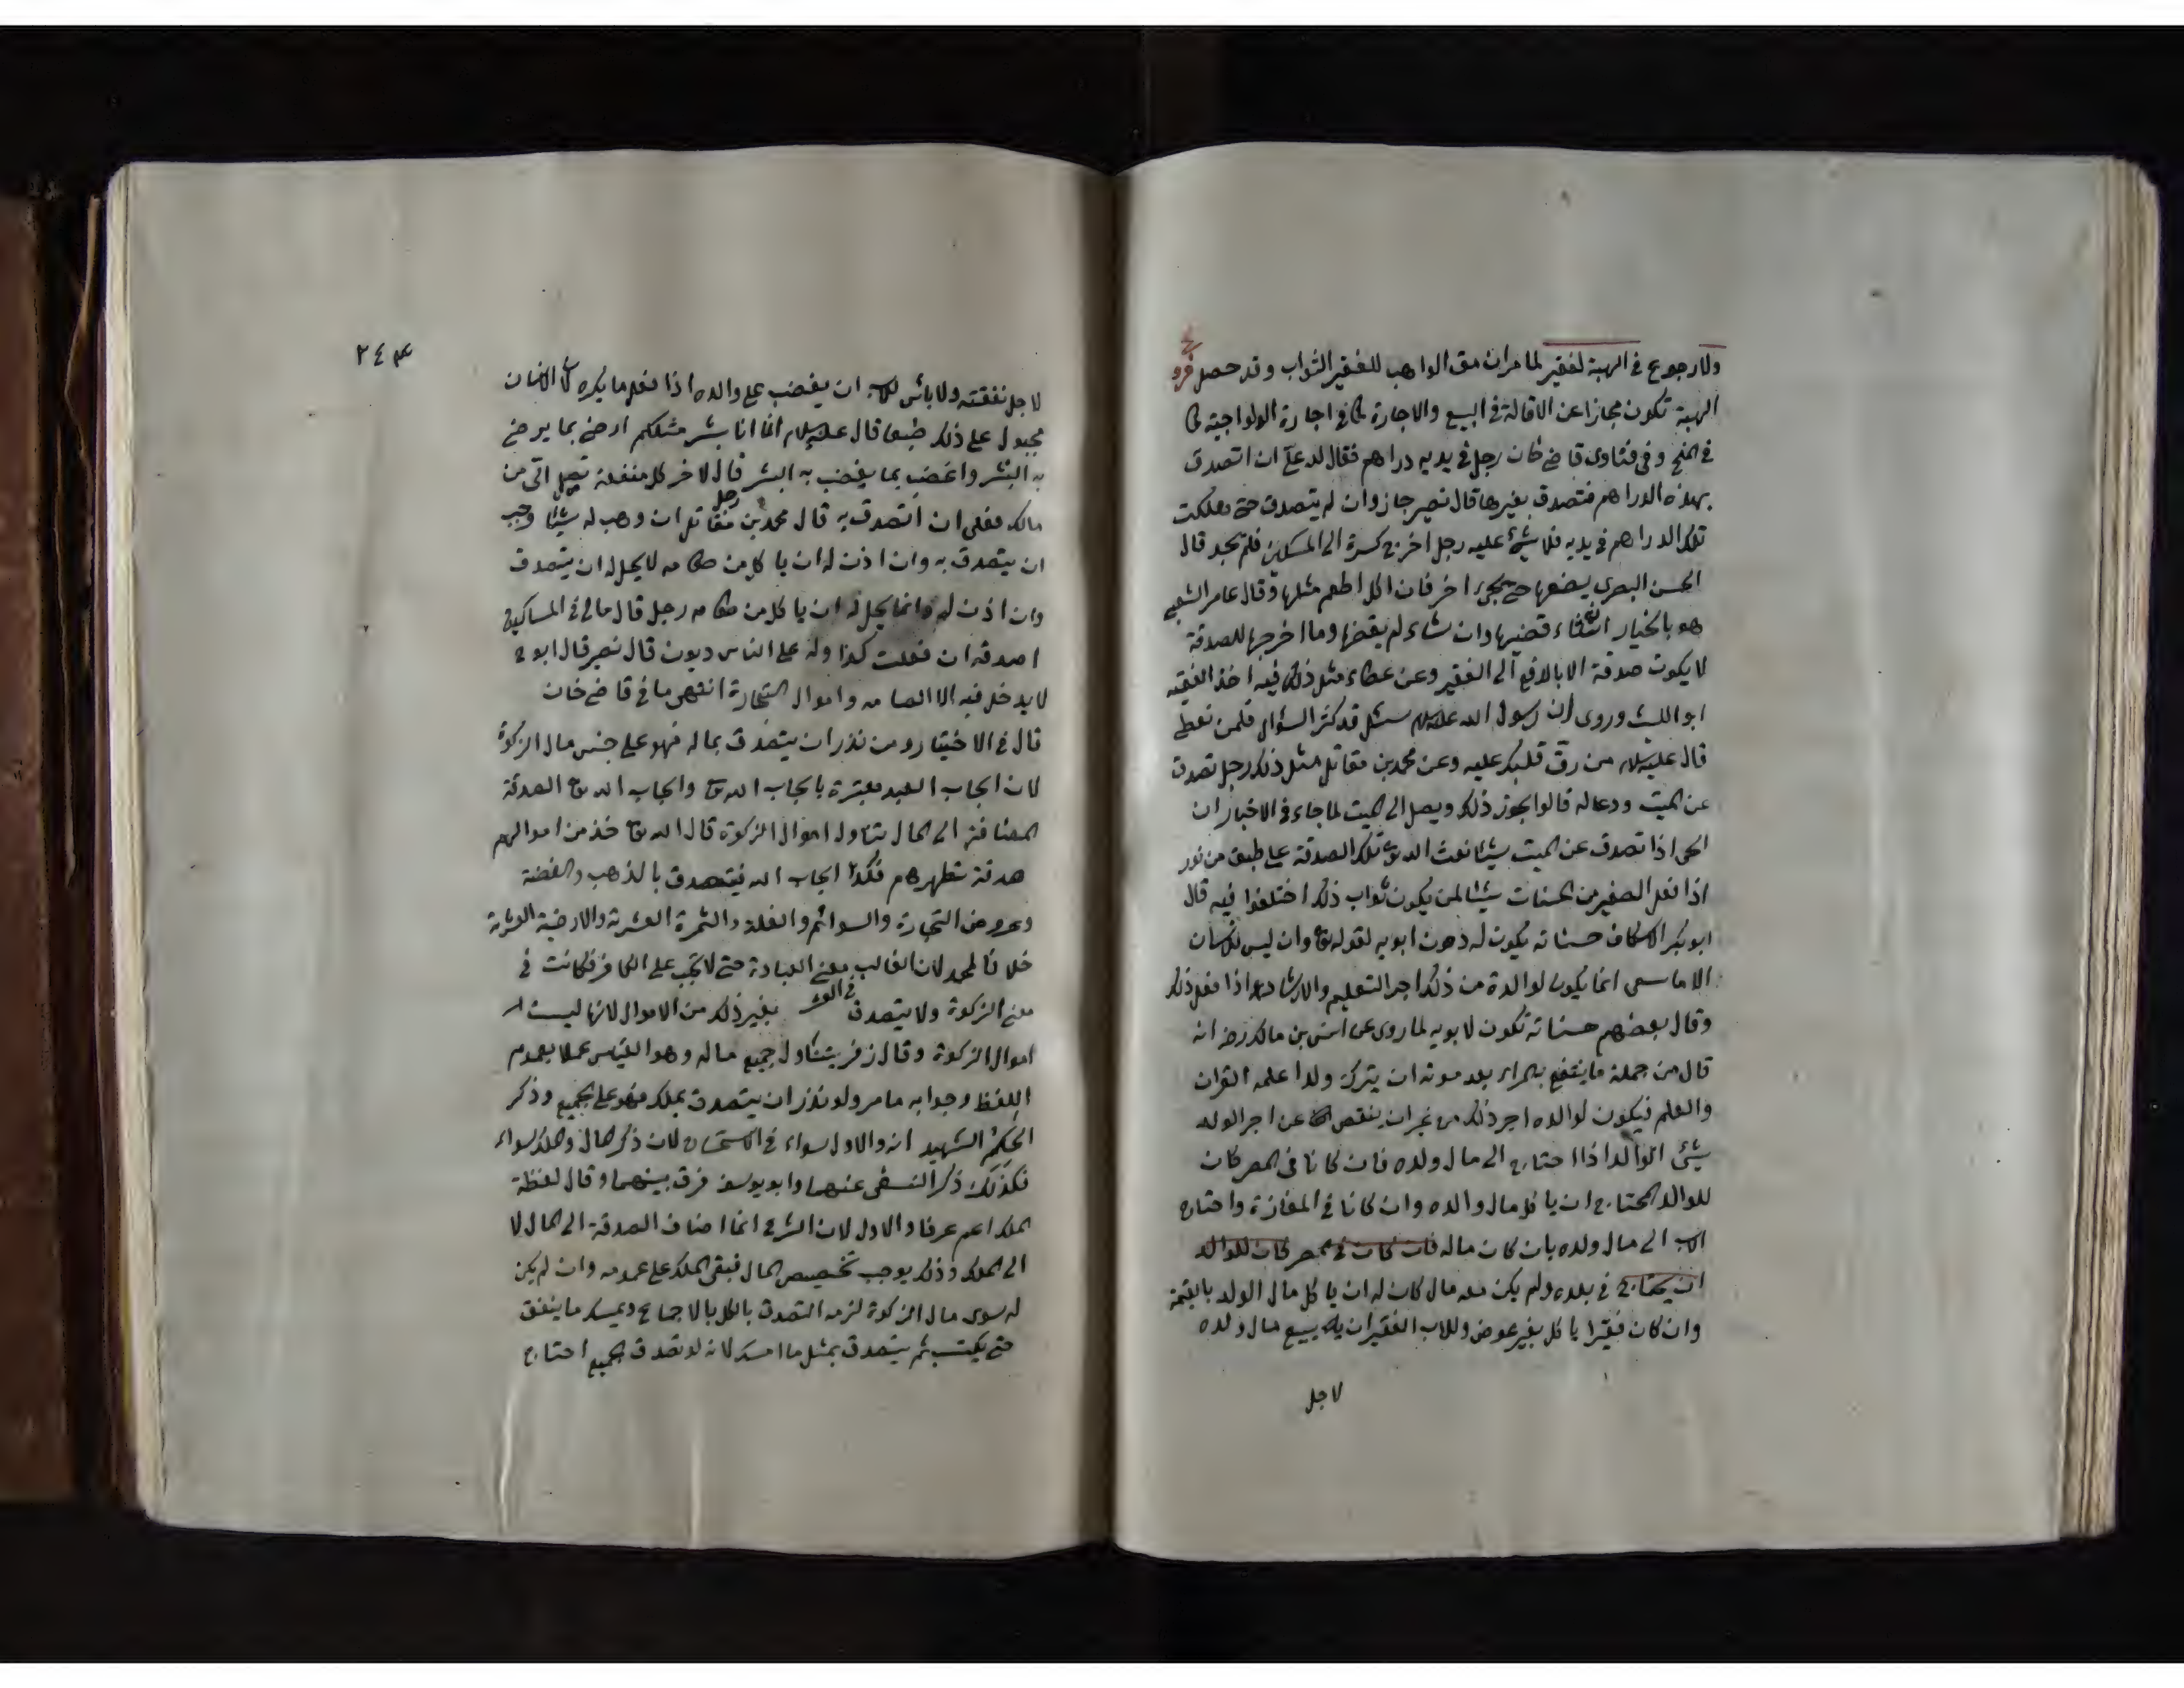 ولا رجوع في الهبة لفقير لما مر ان من الواهب للفقير الثواب وقد حصل فرع
الهبة تكون مجازا عن الاقالة في البيع والاجارة كما في اجارة الولوالجية كما
في المنح وفي فتاوى قاضي خان رجل في يديه دراهم فقال لله علي ان اتصدق
بهذه الدراهم فتصدق بغيرها قال نصير جاز وان لم يتصدق حتى هلكت
تلك الدراهم في يديه فلا شئ عليه رجل اخرج كسرة الى المسكين فلم يجد قال
الحسن البصري يضعها حتى يجئ اخر فان اكل اطعم مثلها وقال عامر الشعبي
هو بالخيار ان شاء قضيها وان شاء لم يقضها وما اخرجها للصدقة
لا يكون صدقة الا بالدفع الى الفقير وعن عطاء مثل ذلك فيه اخذ الفقيه
ابو الليث وروى ان رسول الله عليه السلام سئل قد كثر السؤال فلمن نعطي
قال عليه السلام من رق قلبك عليه وعن محمد بن مقاتل مثل ذلك رجل تصدق
عن الميت ودعا له قالوا يجوز ذلك ويصل الى الميت لما جاء في الاخبار ان
الحي اذا تصدق عن الميت شيئا بعث الله تع تلك الصدقة على طبق من نور
اذا فعل الصغير من الحسنات شيئا لمن يكون ثواب ذلك اختلفوا فيه قال
ابو بكر الاسكاف حسناته يكون له دون ابويه لقوله تع وان ليس للانسان
الا ما سعى انما يكون لوالده من ذلك اجر التعليم والارشاد اذا فعل ذلك
وقال بعضهم حسناته تكون لابويه لما روى عن انس بن مالك رضي انه
قال من جملة ما ينتفع به المرء بعد موته ان يترك ولدا علمه القران
والعلم فيكون لوالده اجر ذلك من غير ان ينقص عن اجر الولد
شئ الوالد اذا احتاج الى مال ولده فان كانا في المصر كان
للوالد المحتاج ان ياكل مال والده وان كانا في المفازة واحتاج
الاب الى مال ولده بان كان ماله فان كان في المصر كان للوالد
ان يحتاج في بلده ولم يكن معه مال كان له ان ياكل مال الولد بالقيمة
وان كان فقيرا ياكل بغير عوض وللاب الفقير ان يبيع مال ولده
لاجل
٢٤٣
لاجل نفقته ولا باس للاب ان يغضب على والده اذا فعل ما يكره لان الانسان
مجبول على ذلك طبعا قال عليه السلام انما انا بشر مثلكم ارضى بما يرضى
به البشر واغضب بما يغضب به البشر قال لاخر كل منفعة تصل الي من
مالك فعلي ان اتصدق به قال محمد بن مقاتل رجل ان وهب له شيئا وجب
ان يتصدق به وان اذن له ان ياكل من طعامه لا يحل له ان يتصدق
وان اذن له وانما يحل له ان ياكل من طعامه رجل قال مالي في المساكين
صدقة ان فعلت كذا وله على الناس ديون قال نصير قال ابو ح
لا يدخل فيه الا الصامت واموال التجارة انتهى ما في قاضي خان
قال في الاختيار ومن نذر ان يتصدق بماله فهو على جنس مال الزكوة
لان ايجاب العبد معتبرة بايجاب الله تع وايجاب الله تع الصدقة
المضافة الى المال تناول اموال الزكوة قال الله تع خذ من اموالهم
صدقة تطهرهم فكذا ايجاب العبد فيتصدق بالذهب والفضة
وعروض التجارة والسوائم والغلة والثمرة العشرية والارضية العشرية
خلافا لمحمد لان الغالب معنى العبادة حتى لا تجب على الكافر فكانت في
معنى الزكوة ولا يتصدق في العشر بغير ذلك من الاموال لانها ليست
اموال الزكوة وقال زفر يتناول جميع ماله وهو القياس عملا بعموم
اللفظ وجوابه ما مر ولو نذر ان يتصدق بملكه فهو على الجميع وذكر
الحاكم الشهيد انه والاول سواء في الاستحسان لان ذكر المال والملك سواء
فكذلك ذكر النسفي عنهما وابو يوسف فرق بينهما وقال لفظة
الملك اعم عرفا والاول لان الشرع انما اضاف الصدقة الى المال لا
الى الملك وذلك يوجب تخصيص المال فبقي الملك على عمومه وان لم يكن
له سوى مال الزكوة لزمه التصدق بالكل بالاجماع ويمسك ما ينفق
حتى يكتسب ثم يتصدق بمثل ما امسك لانه لو تصدق الجميع احتاج